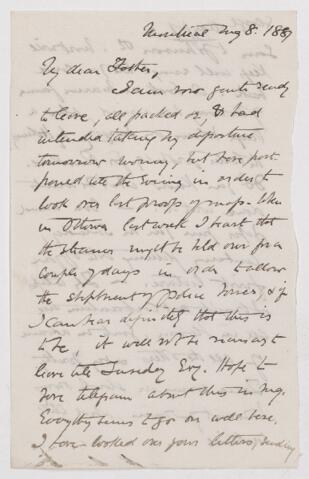 Montreal Aug 8. 1887
My dear Father,
I am now quite ready
to leave, all packed &c, & had
intended taking my departure
tomorrow morning, but have post
poned till the Evening in order to
look over last proofs of maps. When
in Ottawa last week I heard that
the steamer might be held over for a
couple of days in order to allow
the shipment of Police horses, & if
I can hear definitely that this is
to be, it will not be necessary to
leave till Tuesday Evg. Hope to
have telegram about this in mg.
Everything seems to go on well here.
I have looked over your letters, sending